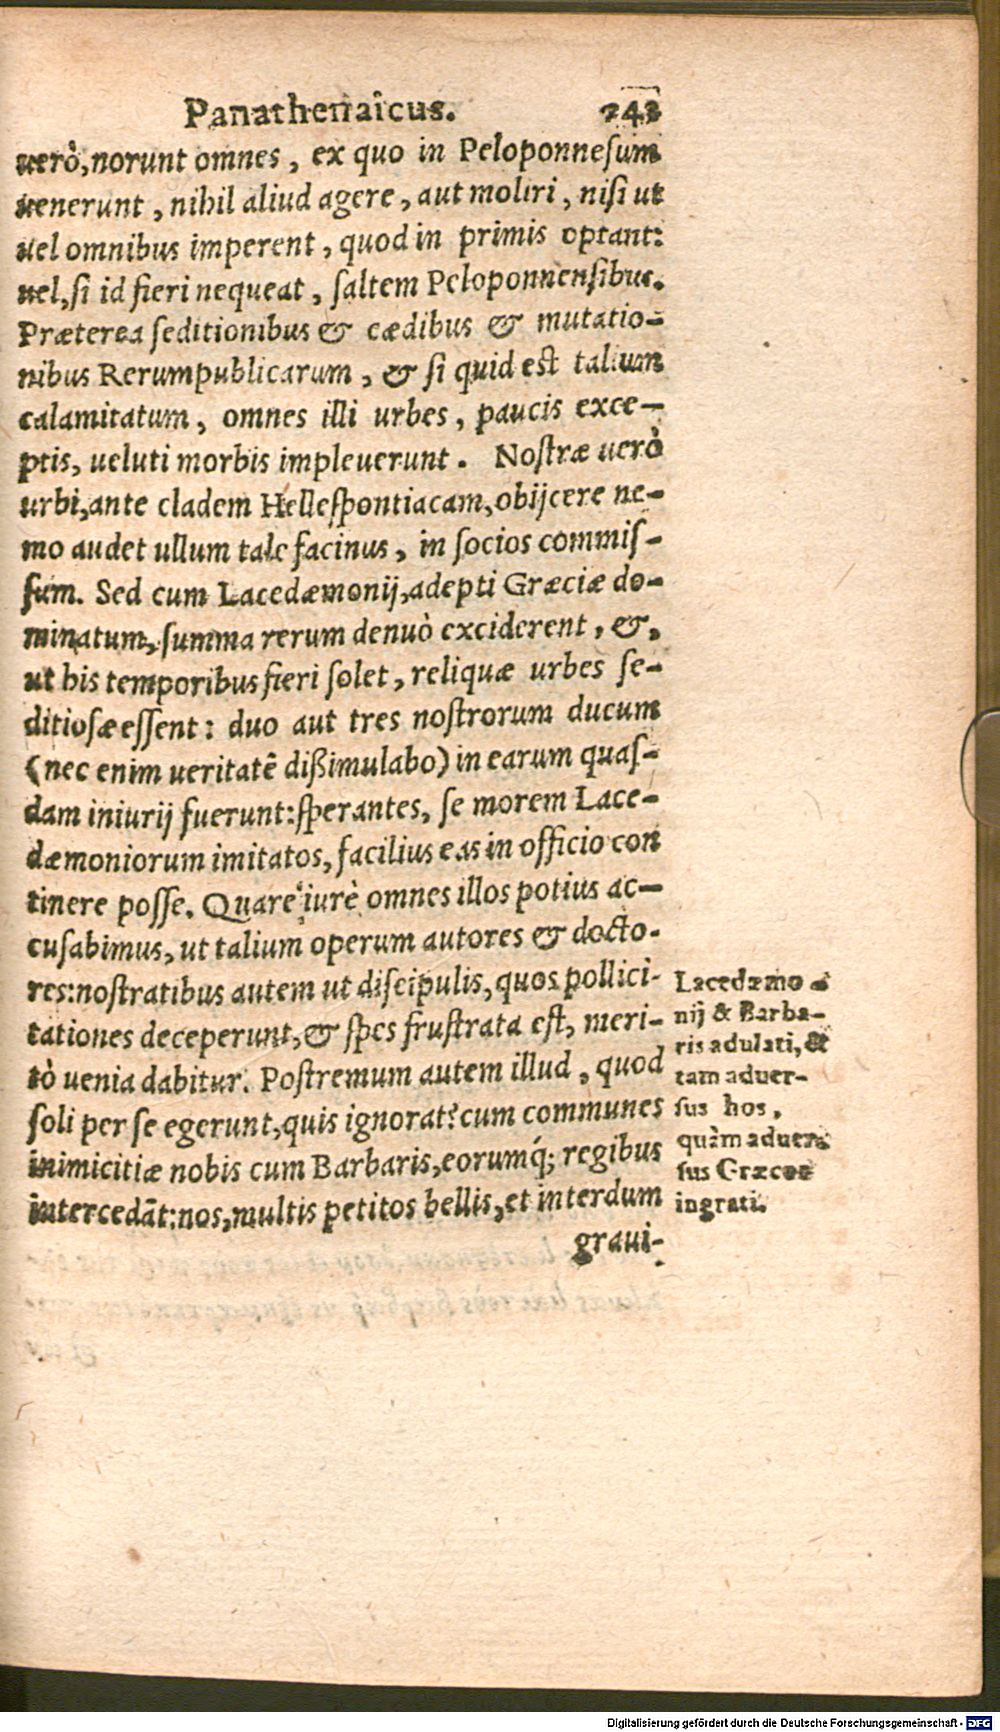 Panathenaicus. 243
uerò, norunt omnes, ex quo in Peloponnesum
uenerunt, nihil aliud agere, aut moliri, nisi ut
uel omnibus imperent, quod in primis optant:
uel, si id fieri nequeat, saltem Peloponnensibus.
Præterea seditionibus & cædibus & mutatio-
nibus Rerumpublicarum, & si quid est talium
calamitatum, omnes illi urbes, paucis exce-
ptis, ueluti morbis impleuerunt. Nostræ uerò
urbi, ante cladem Hellespontiacam, obijcere ne-
mo audet ullum tale facinus, in socios commis-
sum. Sed cum Lacedæmonij, adepti Græciæ do-
minatum, summa rerum denuò exciderent, &,
ut his temporibus fieri solet, reliquæ urbes se-
ditiosæ essent: duo aut tres nostrorum ducum
(nec enim ueritatē dißimulabo) in earum quas-
dam iniurij fuerunt: sperantes, se morem Lace-
dæmoniorum imitatos, facilius eas in officio con
tinere posse. Quare iurè omnes illos potius ac-
cusabimus, ut talium operum autores & docto-
res: nostratibus autem ut discipulis, quos pollici-
tationes deceperunt, & spes frustrata est, meri-
tò uenia dabitur. Postremum autem illud, quod
soli per se egerunt, quis ignorat? cum communes
inimicitiæ nobis cum Barbaris, eorumq́; regibus
intercedāt: nos, multis petitos bellis, et interdum
graui-
Lacedæmo
nij & Barba-
ris adulati, &
tam aduer-
sus hos,
quàm aduer
sus Græcos
ingrati.
Digitalisierung gefördert durch die Deutsche Forschungsgemeinschaft - DFG